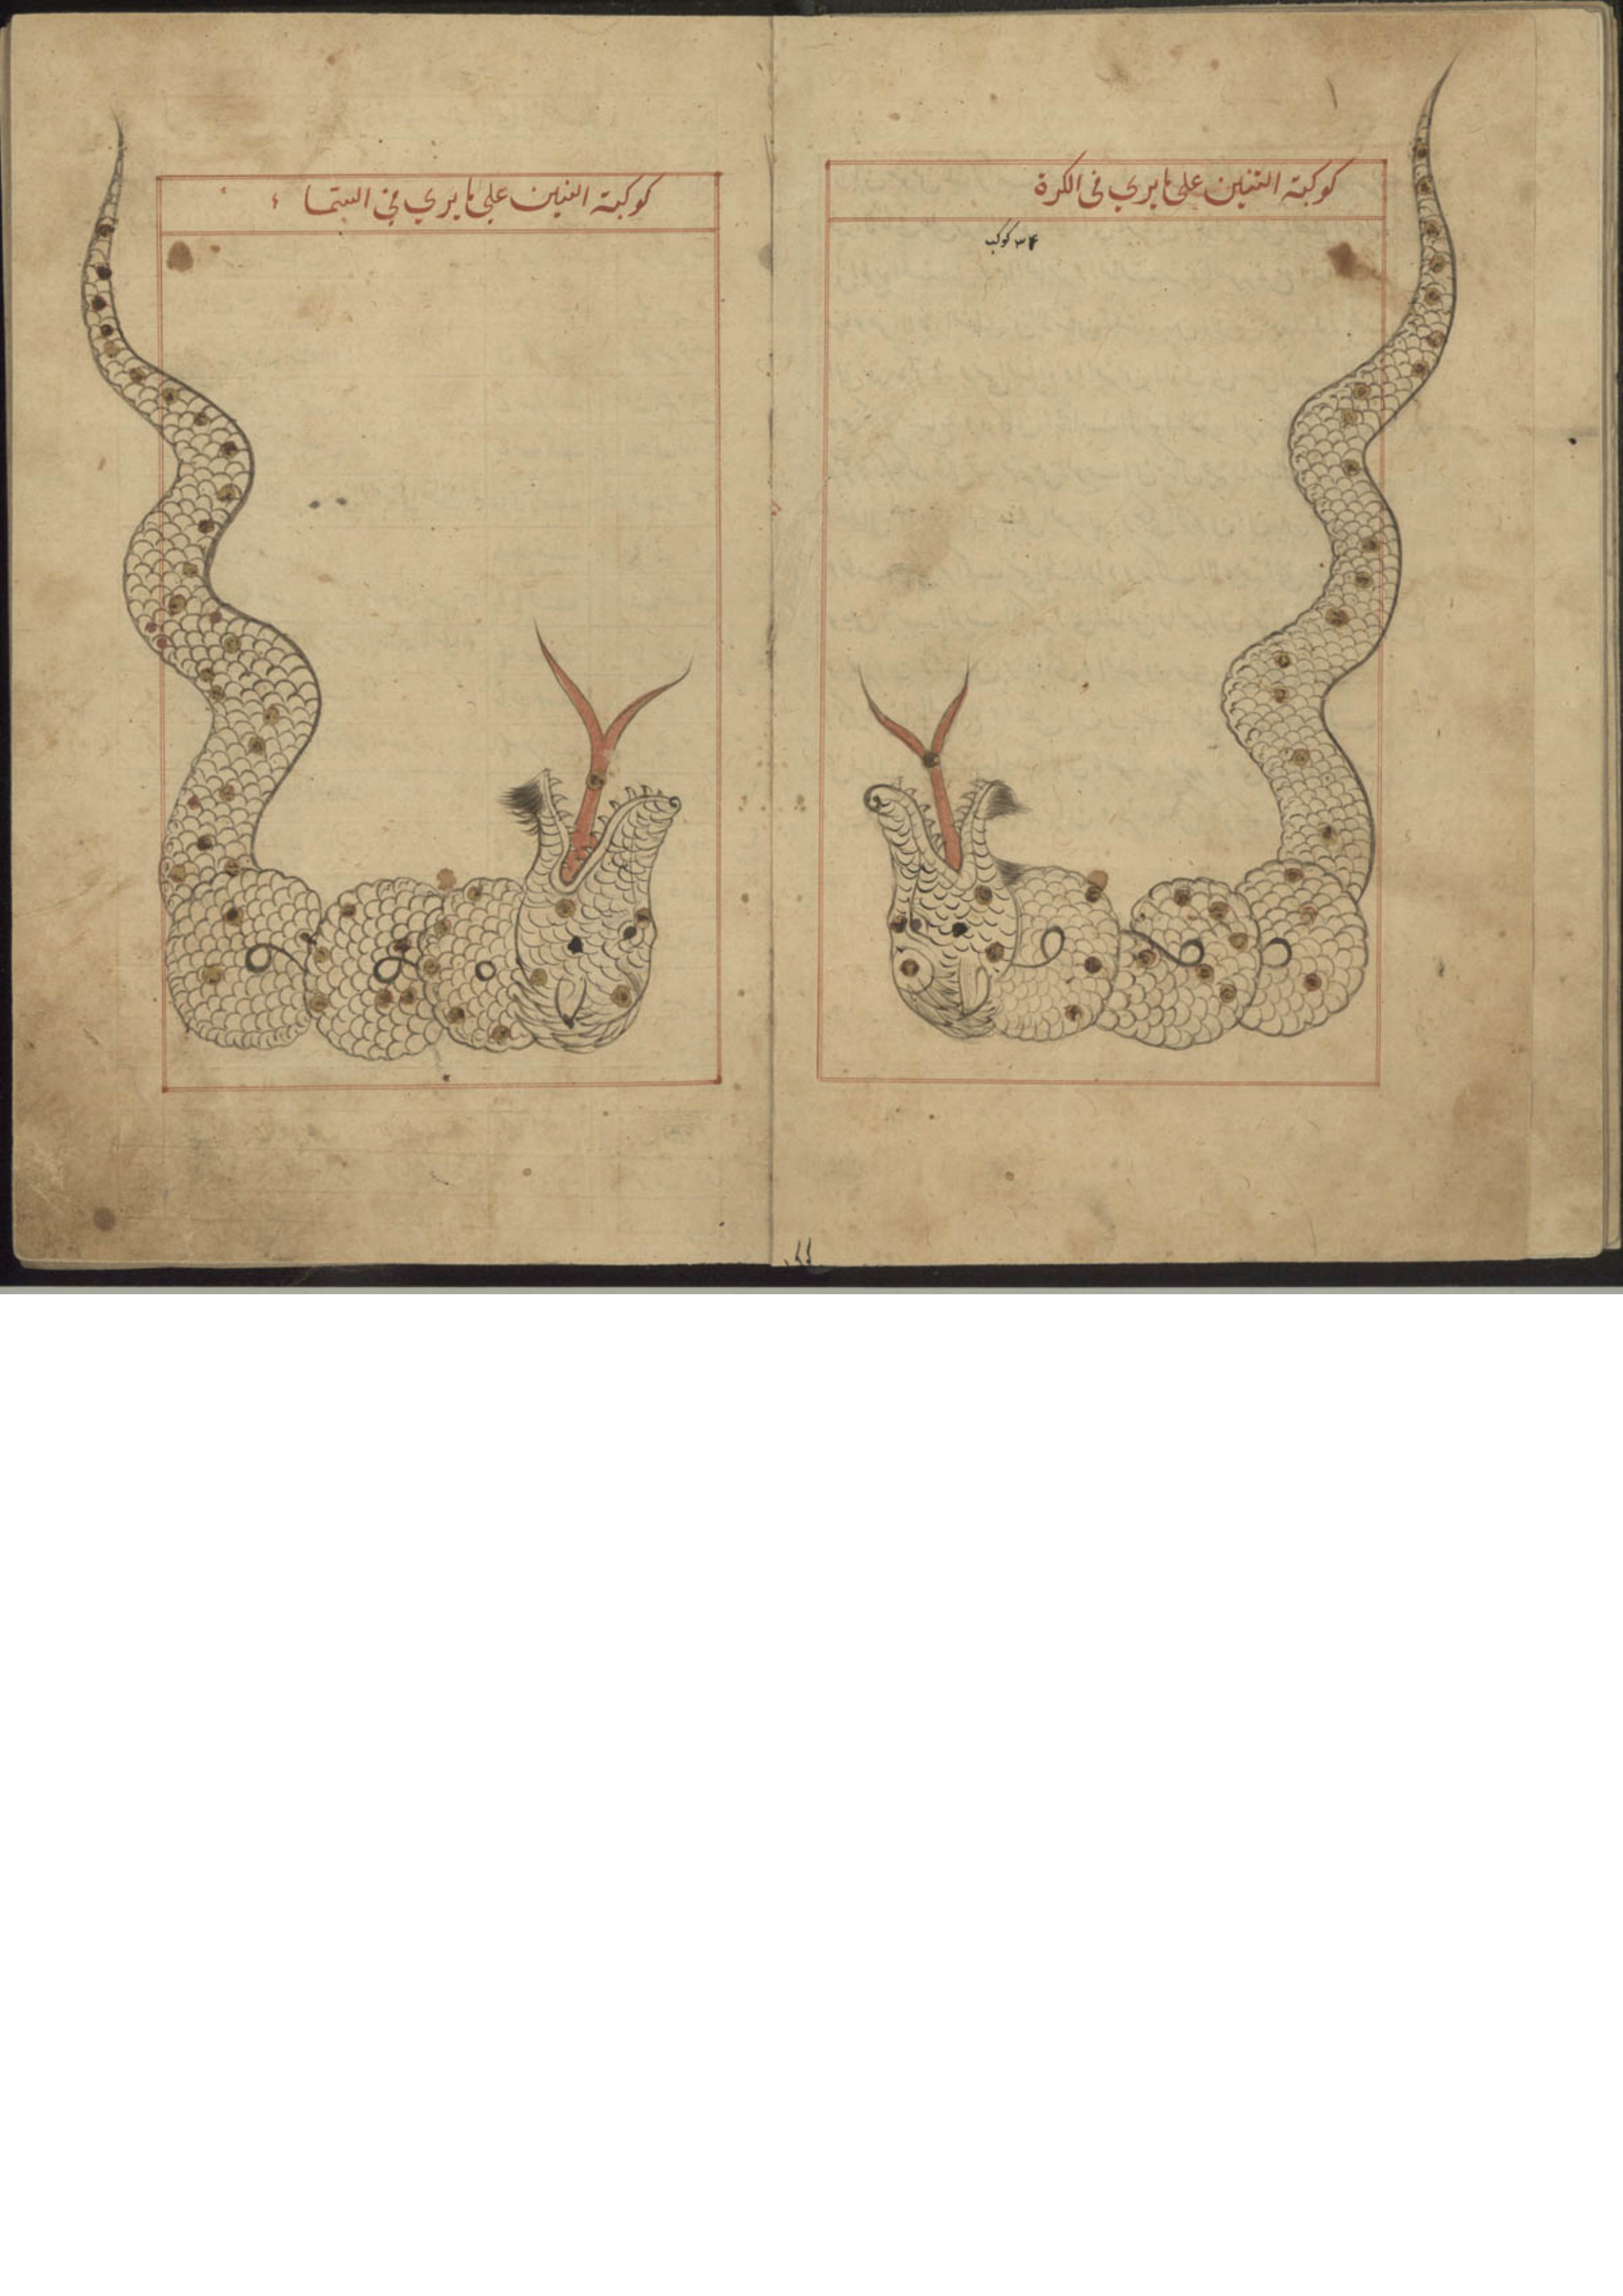 كوكبة التنين على ما يرى فى الكرة
٣٤ كوكب
كوكبة التنين على ما يرى في السماء